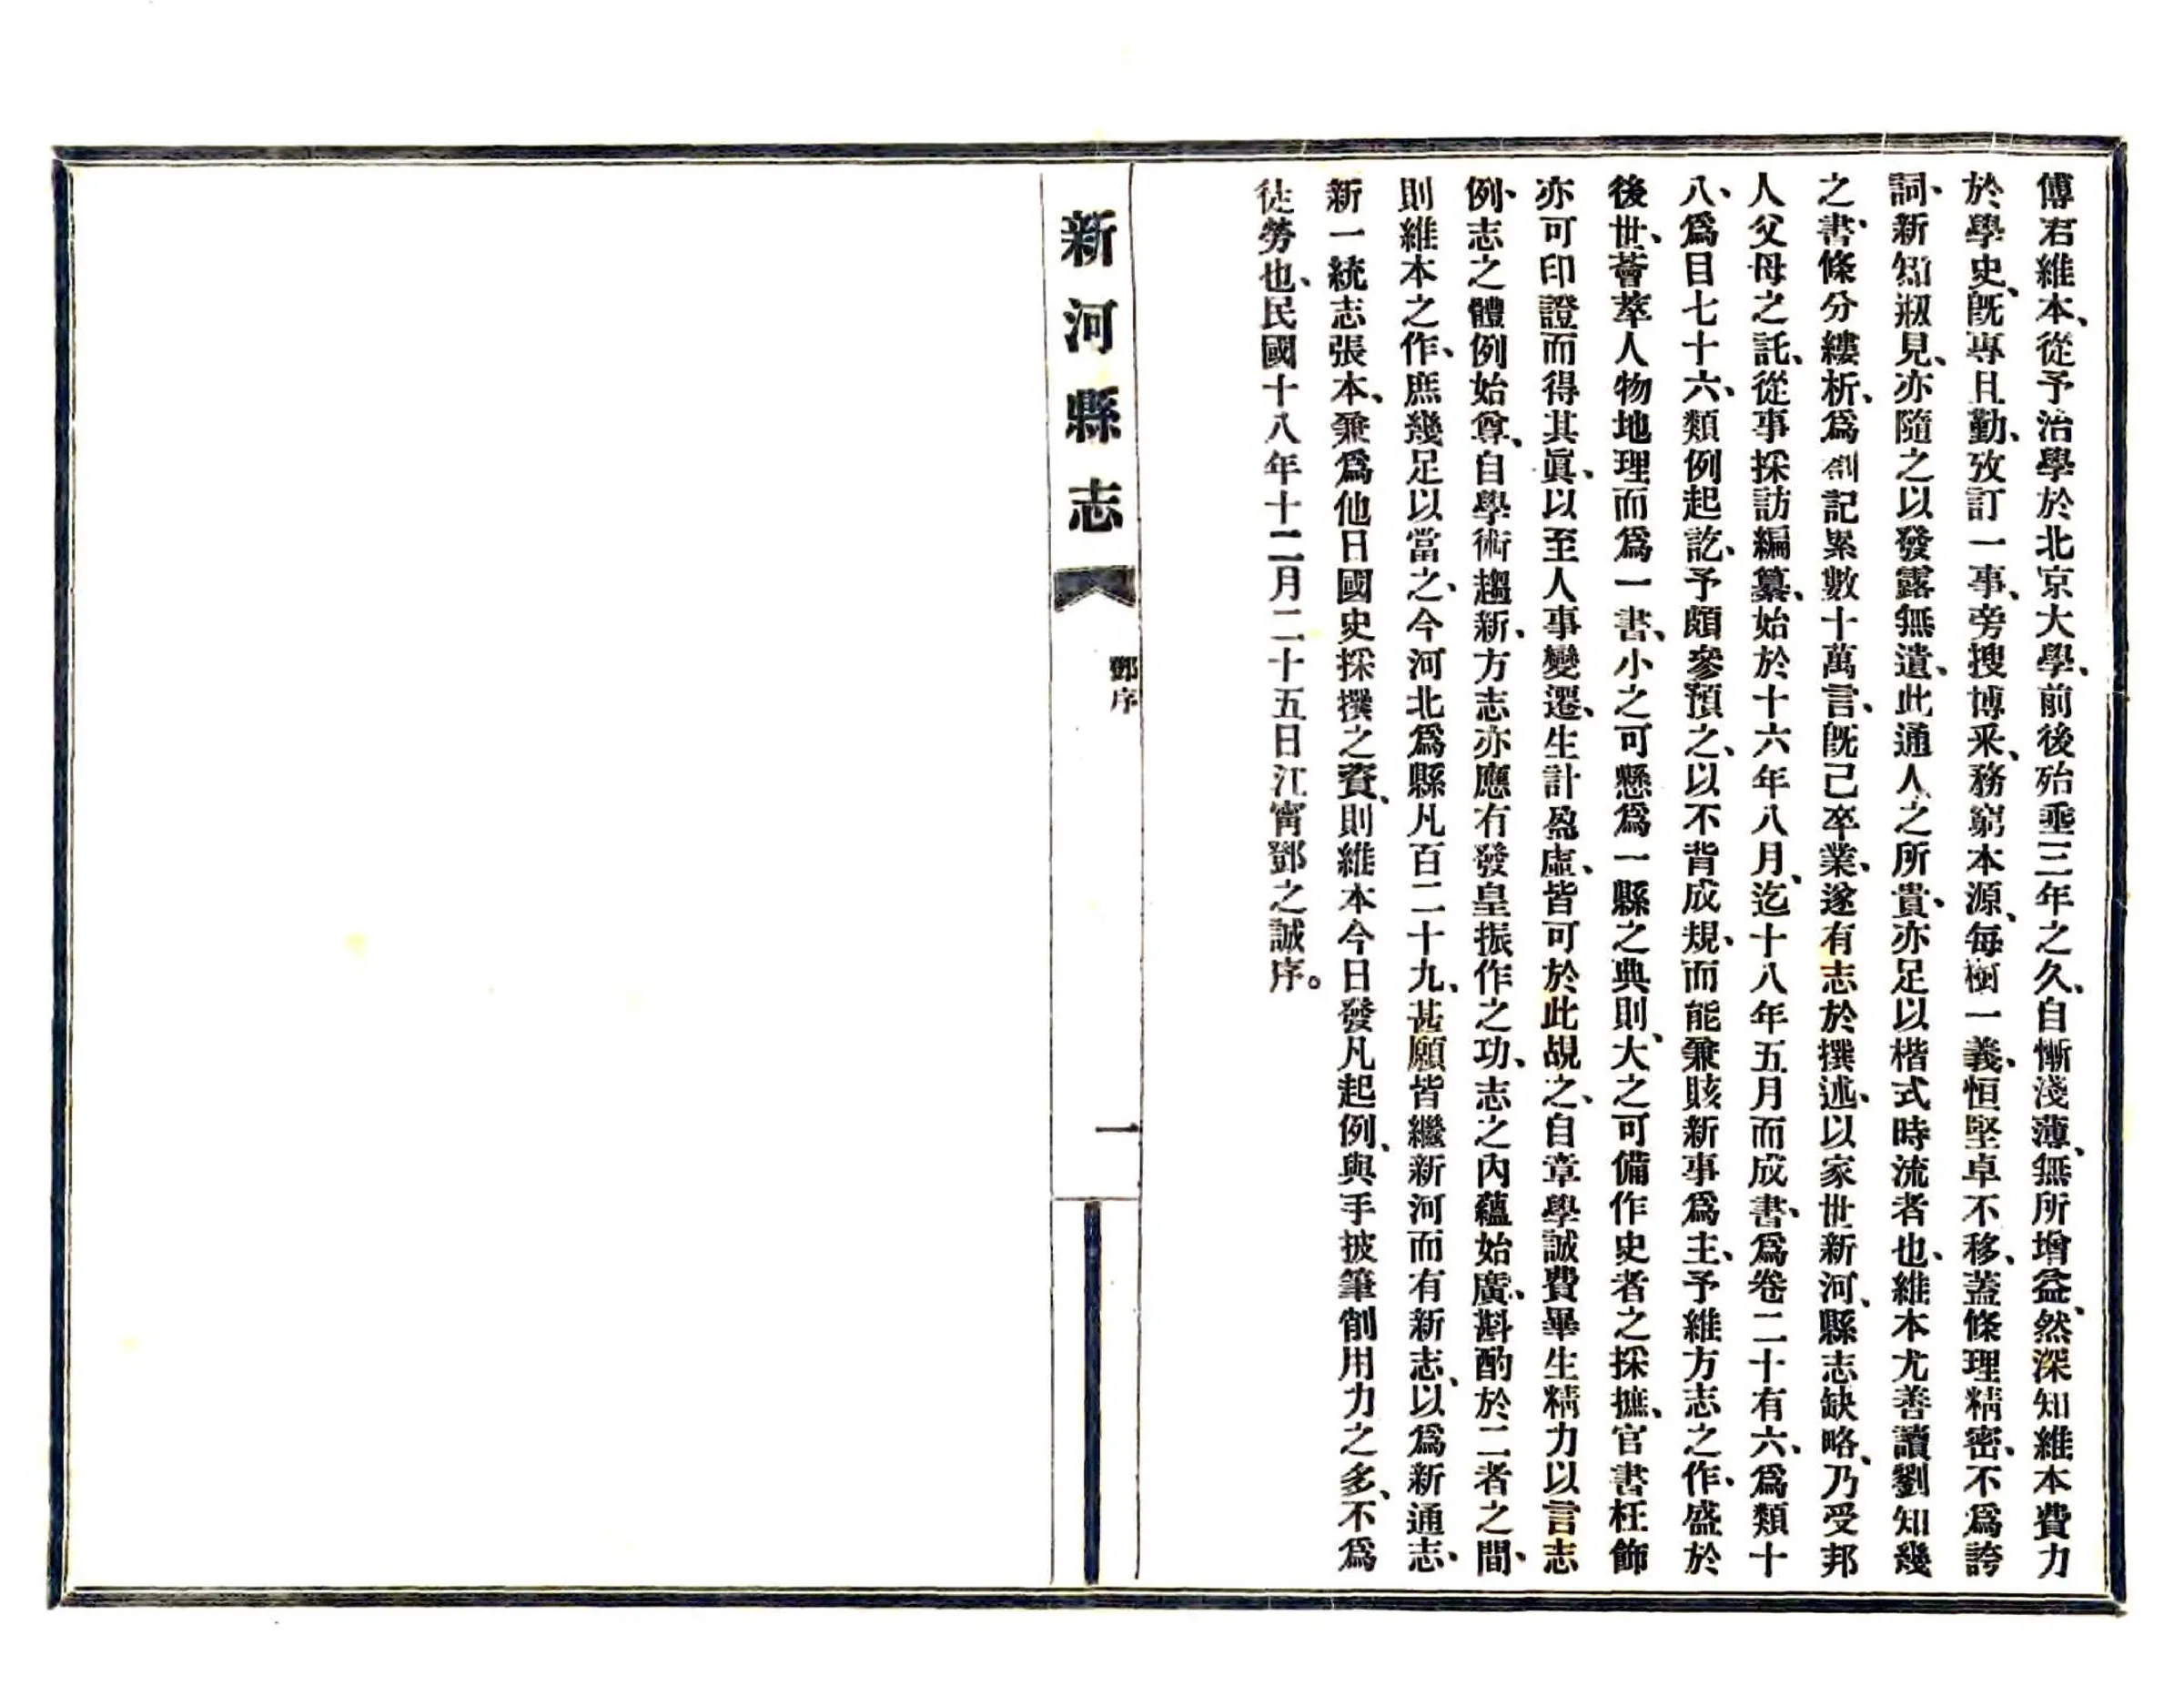 傅君維本、從予治學於北京大學、前後殆垂三年之久、自慚淺薄、無所增益、然深知維本費力
於學史、旣專且勤、攷訂一事、旁搜博采、務窮本源、每樹一義、恒堅卓不移、蓋條理精密、不爲誇
詞、新知剙見、亦隨之以發露無遺、此通人之所貴、亦足以楷式時流者也、維本尤善讀劉知幾
之書、條分縷析、爲劄記累數十萬言、旣已卒業、遂有志於撰述、以家世新河、縣志缺略、乃受邦
人父母之託、從事採訪編纂、始於十六年八月、迄十八年五月而成書、爲卷二十有六、爲類十
八、爲目七十六、類例起訖、予頗參預之、以不背成規、而能兼賅新事爲主、予維方志之作、盛於
後世、薈萃人物地理而爲一書、小之可懸爲一縣之典則、大之可備作史者之採摭、官書枉飾
亦可印證而得其眞、以至人事變遷、生計盈虛、皆可於此覘之、自章學誠費畢生精力以言志
例、志之體例始尊、自學術趨新、方志亦應有發皇振作之功、志之內蘊始廣、斟酌於二者之間、
則維本之作、庶幾足以當之、今河北爲縣凡百二十九、甚願皆繼新河而有新志、以爲新通志、
新一統志張本、兼爲他日國史採撰之資、則維本今日發凡起例、與手披筆削用力之多、不爲
徒勞也、民國十八年十二月二十五日江甯鄧之誠序。
新河縣志
鄧序
一